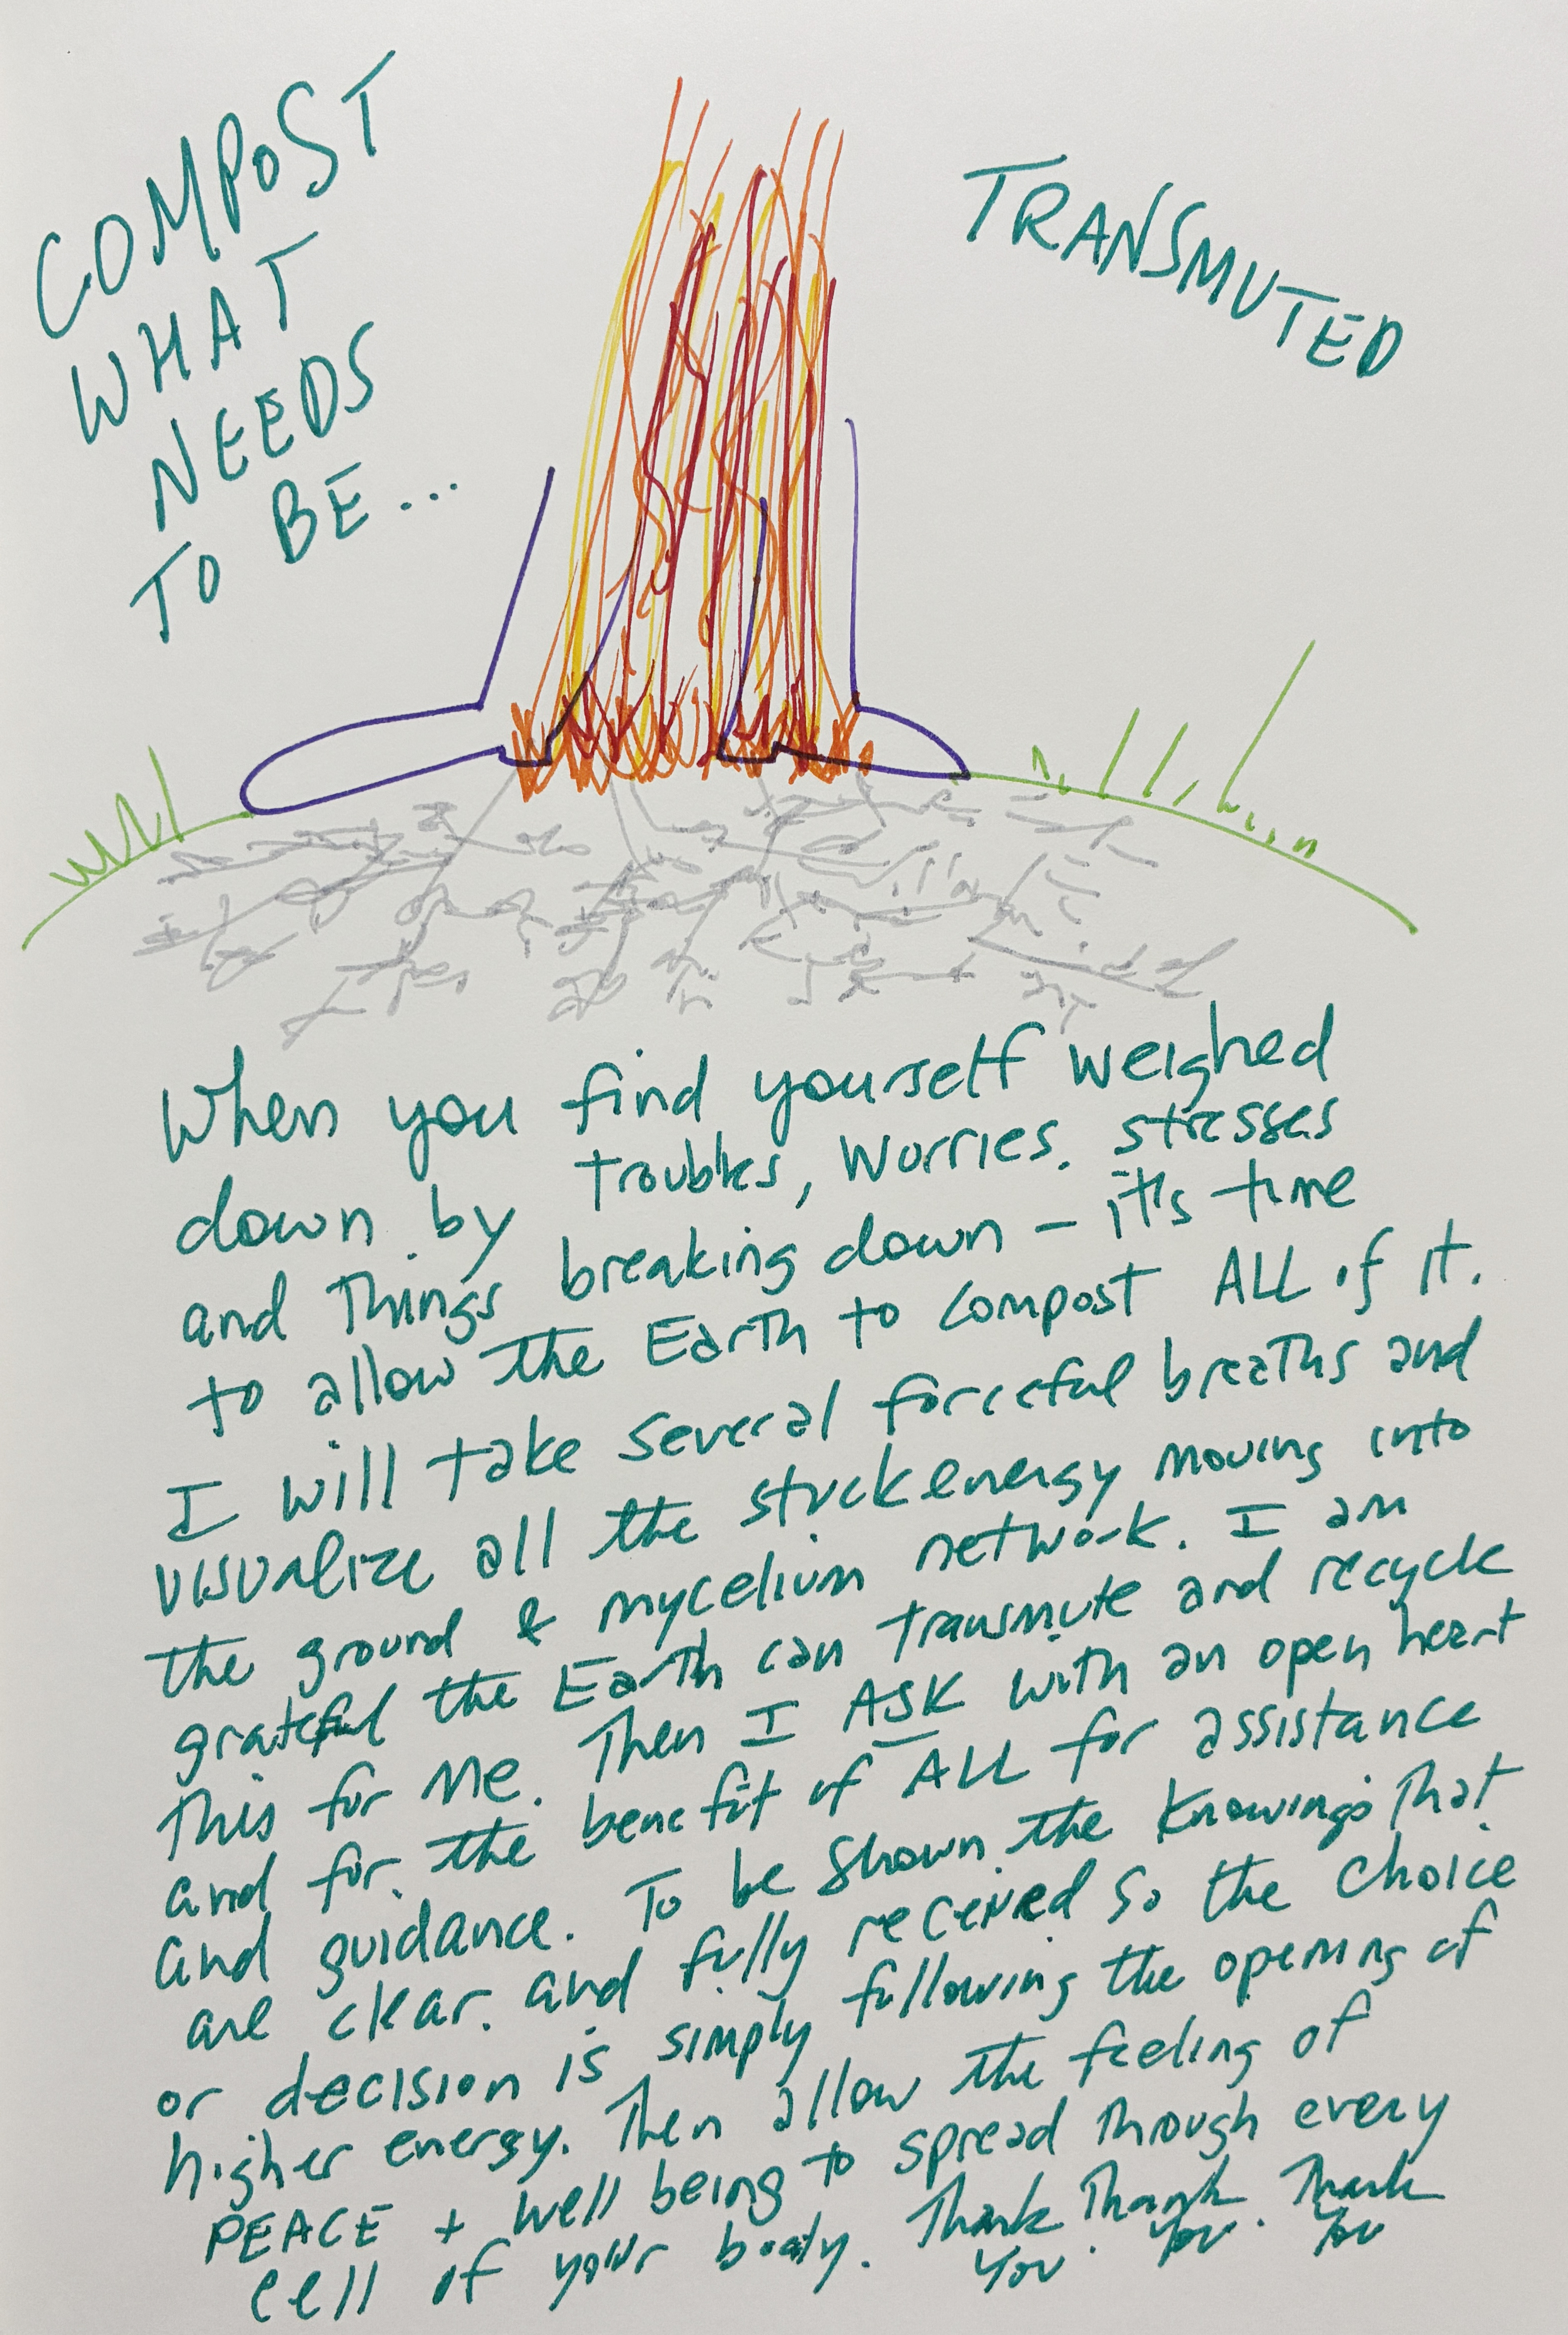 COMPOST
WHAT
NEEDS
TO BE...
TRANSMUTED
When you find yourself weighed
down by troubles, worries, stresses
and things breaking down – it's time
to allow the Earth to compost ALL of it.
I will take several forceful breaths and
visualize all the stuck energy moving into
the ground & mycelium network. I am
grateful the Earth can transmute and recycle
this for me. Then I ASK with an open heart
and for the benefit of ALL for assistance
and guidance. To be shown the knowings that
are clear and fully received so the choice
or decision is simply following the opening of
higher energy. Then allow the feeling of
PEACE + well being to spread through every
cell of your body. Thank you. Thank you. Thank you